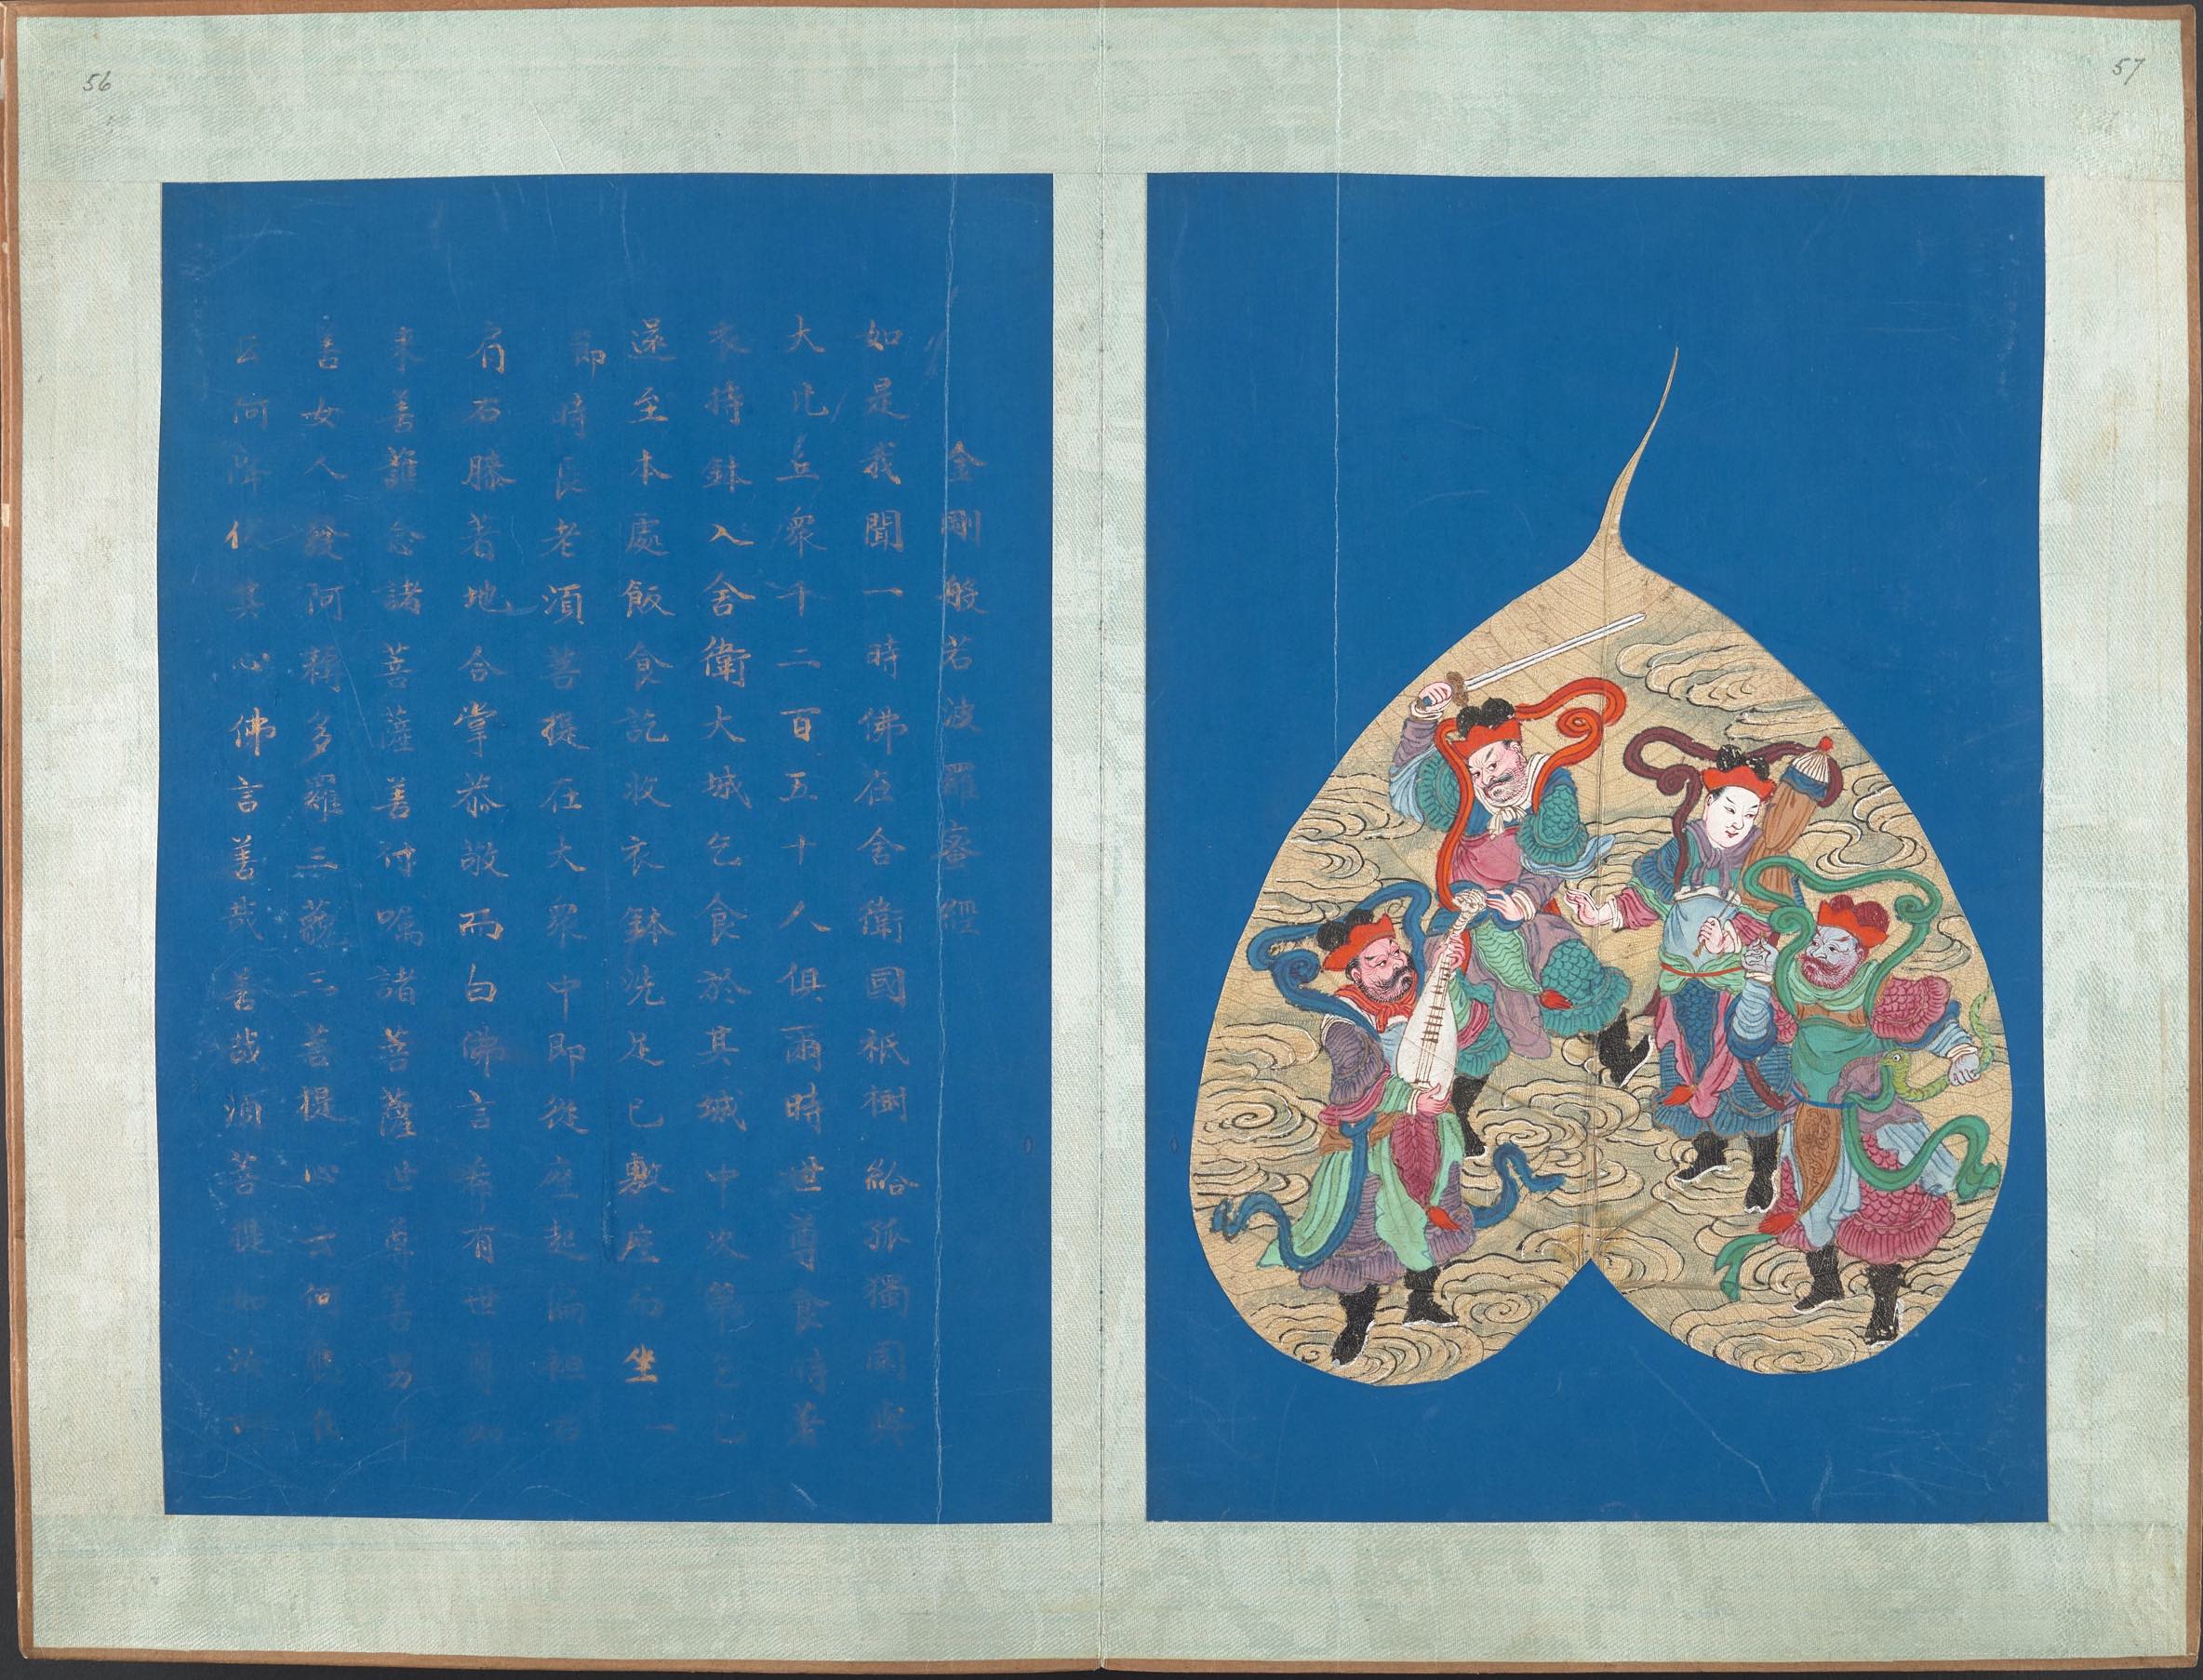 56
57
金剛般若波羅密經
如是我聞一時佛在舍衛國祇樹給孤獨園與
大比丘眾千二百五十人俱爾時世尊食時著
衣持鉢入舍衛大城乞食於其城中次第乞已
還至本處飯食訖收衣鉢洗足已敷座而坐一
節時長老須菩提在大眾中即從座起偏袒右
肩右膝著地合掌恭敬而白佛言希有世尊如
來善護念諸菩薩善付囑諸菩薩世尊善男子
善女人發阿耨多羅三藐三菩提心云何應住
云何降伏其心佛言善哉善哉須菩提如汝所